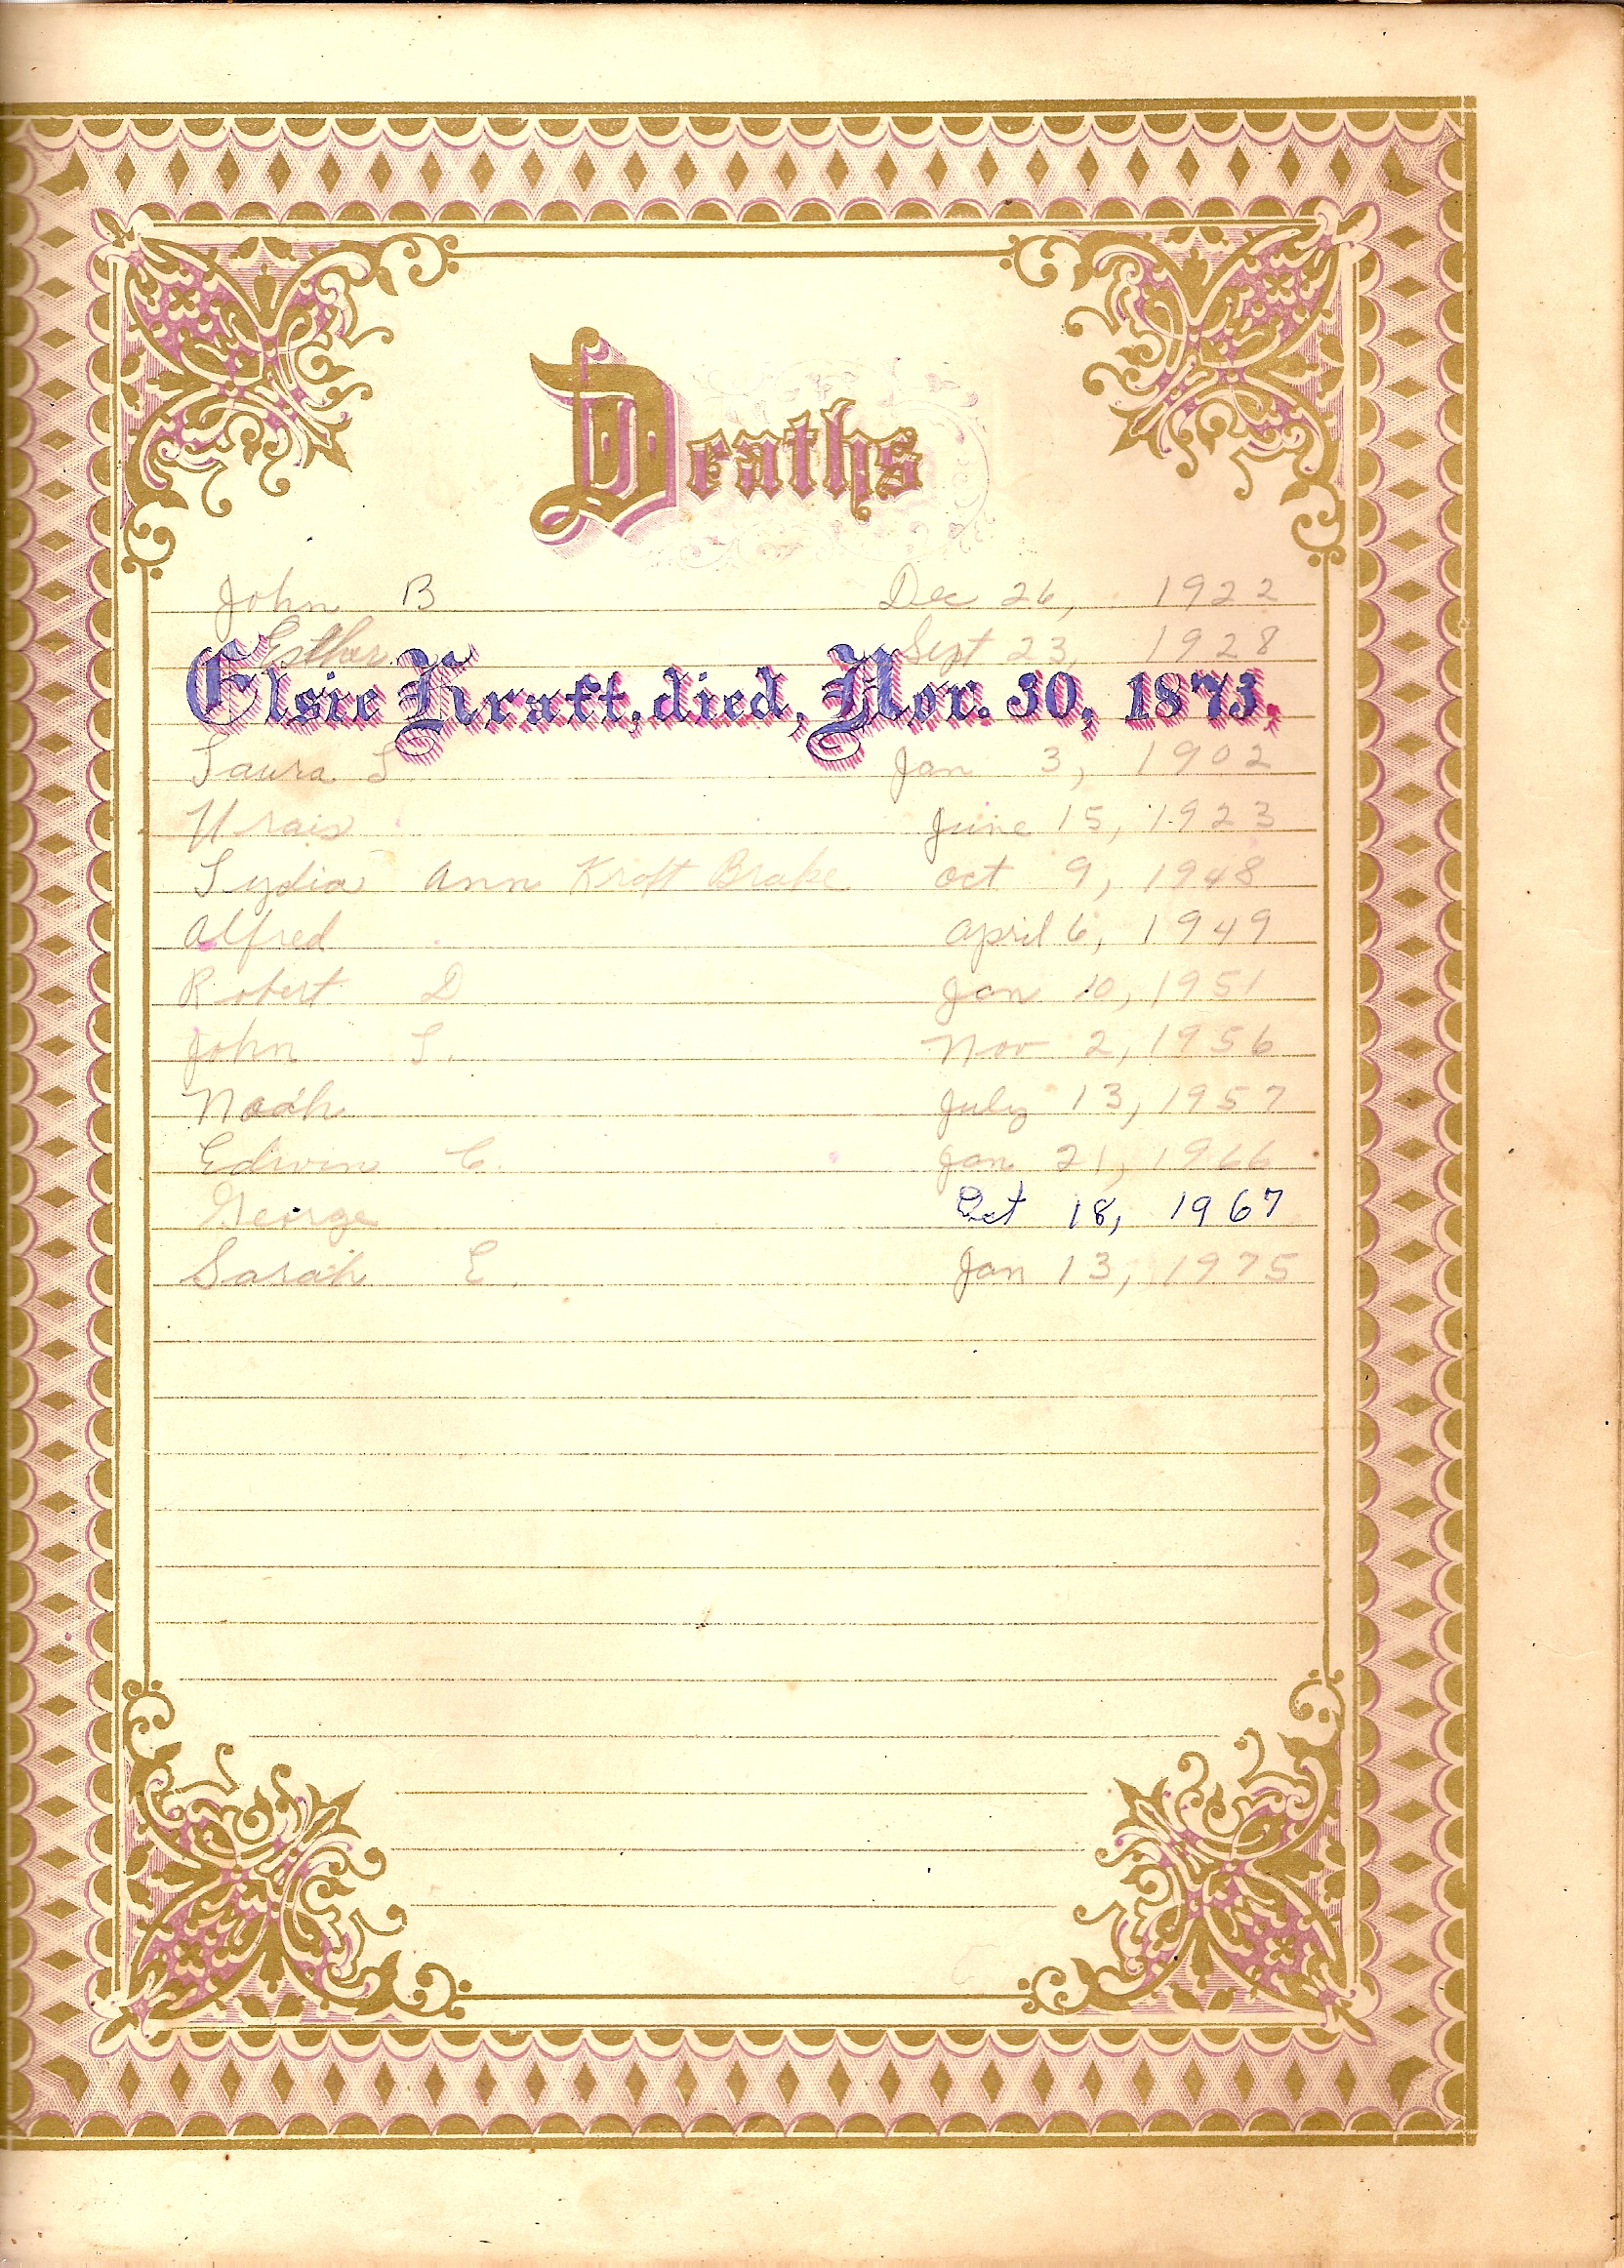 Deaths
John B Dec 26, 1922
Esther Sept 23, 1928
Elsie Kraft, died, Nov. 30, 1873.
Laura S Jan 3, 1902
Urais June 15, 1923
Lydia Ann Kraft Brake Oct 9, 1948
Alfred April 6, 1949
Robert D Jan 10, 1951
John S. Nov 2, 1956
Noah July 13, 1957
Edwin C. Jan 21, 1966
George Oct 18, 1967
Sarah E. Jan 13, 1975